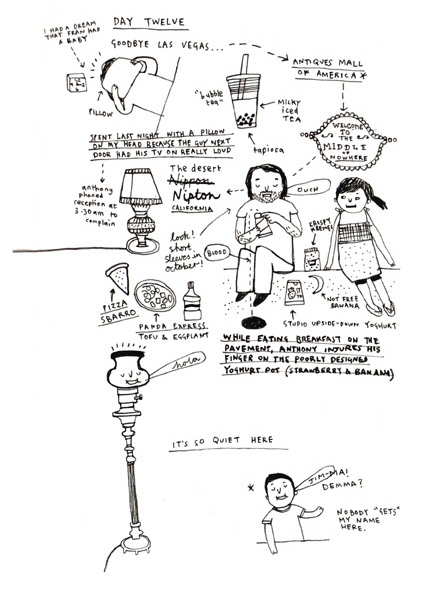 DAY TWELVE
I HAD A DREAM
THAT FRAN HAD
A BABY
GOODBYE LAS VEGAS...
PILLOW
"bubble
tea"
MILKY
iced
TEA
tapioca
ANTIQUES MALL
OF AMERICA*
WELCOME
TO THE
MIDDLE
of
NOWHERE
SPENT LAST NIGHT WITH A PILLOW
ON MY HEAD BECAUSE THE GUY NEXT
DOOR HAD HIS TV ON REALLY LOUD
anthony
phoned
reception at
3.30am to
complain
The desert
Nippon
Nipton
CALIFORNIA
look!
short
sleeves in
october!
OUCH
BLOOD
CRISPY
KREMES
PIZZA
SBARRO
PANDA EXPRESS
TOFU & EGGPLANT
"NOT FREE
BANANA
STUPID UPSIDE-DOWN YOGHURT
WHILE EATING BREAKFAST ON THE
PAVEMENT, ANTHONY INJURES HIS
FINGER ON THE POORLY DESIGNED
YOGHURT POT (STRAWBERRY & BANANA)
hola
IT'S SO QUIET HERE
*
JIM-MA!
DEMMA?
NOBODY "GETS"
MY NAME
HERE.